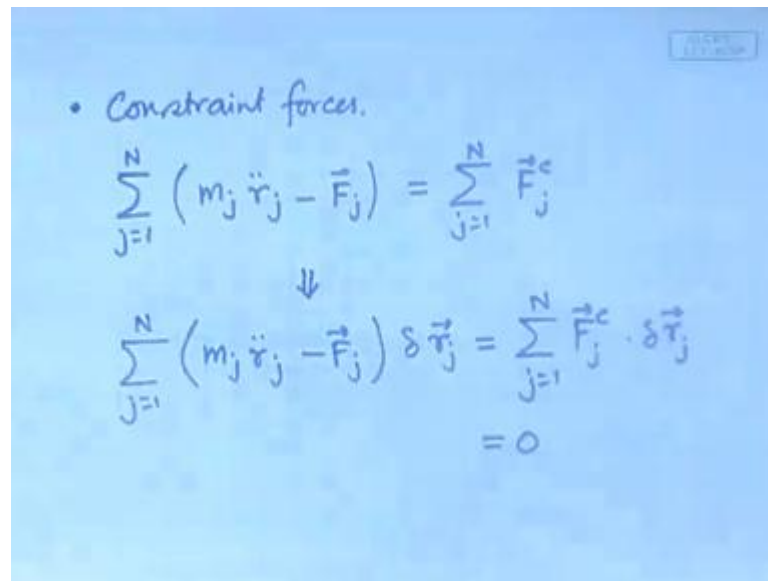 • Constraint forces.
\sum_{j=1}^{N} ( m_j \ddot{r}_j - \vec{F}_j ) = \sum_{j=1}^{N} \vec{F}_j^c
⇓
\sum_{j=1}^{N} ( m_j \ddot{r}_j - \vec{F}_j ) δ \vec{r}_j = \sum_{j=1}^{N} \vec{F}_j^c . δ \vec{r}_j
= 0